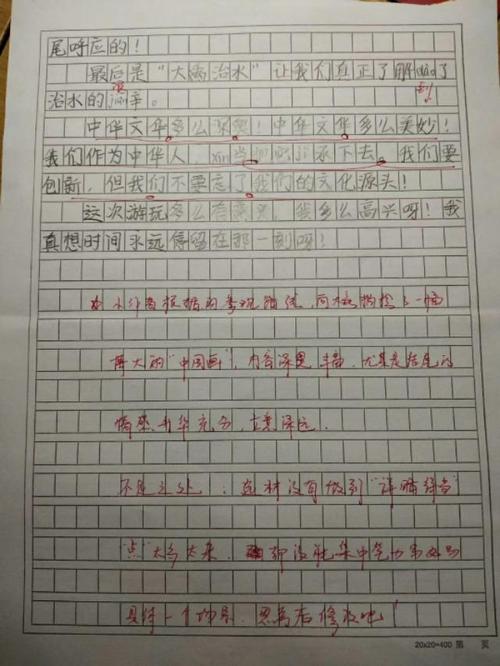 尾呼应的！
最后是“大禹治水”让我们真正了解dao了
到
治水的jian辛。
艰
中华文华多么深奥！中华文华多么美妙！
我们作为中华人，yin当 承下去。我们要
创新，但我们不要忘了我们的文化源头！
这次游玩多么有意义，我多么高兴呀！我
真想时间永远停留在那一刻呀！
小作者根据的参观路线，向 一幅
大的“中国画”，内容深 丰富，尤其是结尾的
情感升华充分，立意深远。
不足之处：选材没有做到“详略得当”
点太多太杂，却没能集中笔力
具体一个场景，思考后修改吧！
20x20=400 第 页